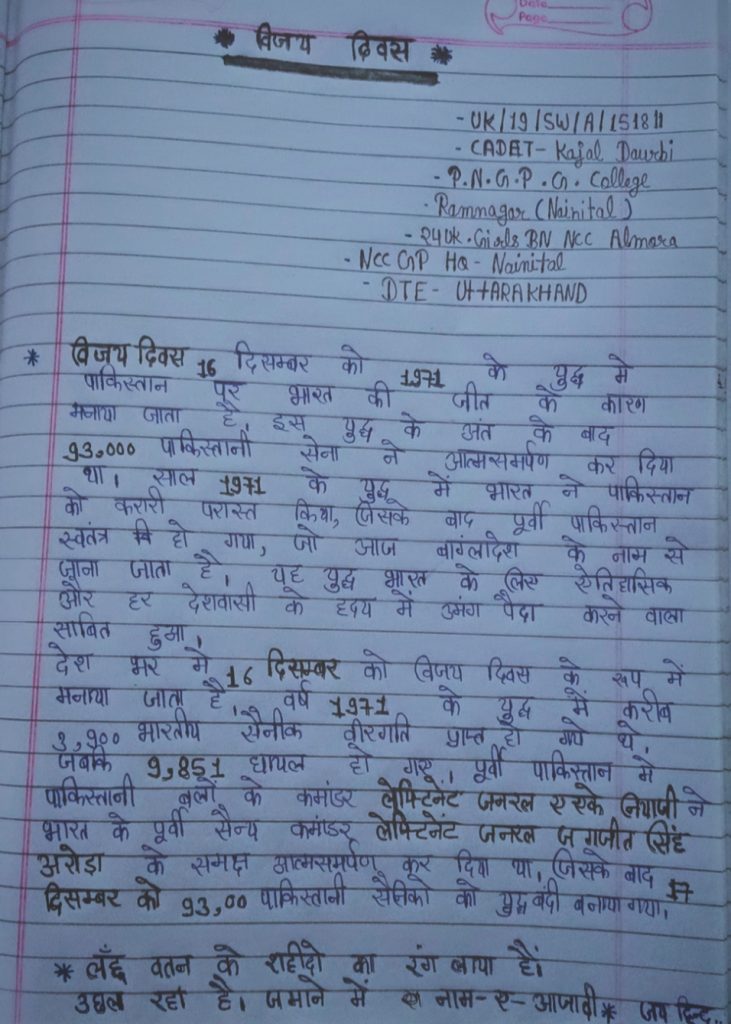 Date
Page
* विजय दिवस *
- UK/19/SW/A/151811
- CADET - Kajal Daurbi
- P.N.G.P.G. College
- Ramnagar (Nainital)
- 24UK. Girls BN NCC Almora
- NCC GP HQ - Nainital
- DTE - UTTARAKHAND
* विजय दिवस 16 दिसम्बर को 1971 के युद्ध मे
पाकिस्तान पर भारत की जीत के कारण
मनाया जाता है, इस युद्ध के अंत के बाद
93,000 पाकिस्तानी सेना ने आत्मसमर्पण कर दिया
था। साल 1971 के युद्ध में भारत ने पाकिस्तान
को करारी परास्त किया, जिसके बाद पूर्वी पाकिस्तान
स्वतंत्र हो गया, जो आज बांग्लादेश के नाम से
जाना जाता है, यह युद्ध भारत के लिए ऐतिहासिक
और हर देशवासी के हृदय में उमंग पैदा करने वाला
साबित हुआ,
देश भर मे 16 दिसम्बर को विजय दिवस के रूप में
मनाया जाता है, वर्ष 1971 के युद्ध में करीब
3,900 भारतीय सैनीक वीरगति प्राप्त हो गये थे,
जबकि 9,851 घायल हो गए, पूर्वी पाकिस्तान मे
पाकिस्तानी बलों के कमांडर लेफ्टिनेंट जनरल ए एके नियाजी ने
भारत के पूर्वी सैन्य कमांडर लेफ्टिनेंट जनरल जगजीत सिंह
अरोड़ा के समक्ष आत्मसमर्पण कर दिया था, जिसके बाद 17
दिसम्बर को 93,00 पाकिस्तानी सैनिको को युद्धबंदी बनाया गया,
* वतन के शहीदो का रंग लाया हैं।
उछल रहा है। जमाने में नाम-ए-आजादी * जय हिन्द..